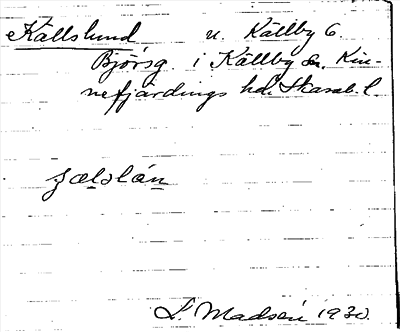 Källslund u. Källby 6.
Björsg. i Källby sn. Kin-
nefjärdings hd. Skarab. l.
L. Madsén 1930.